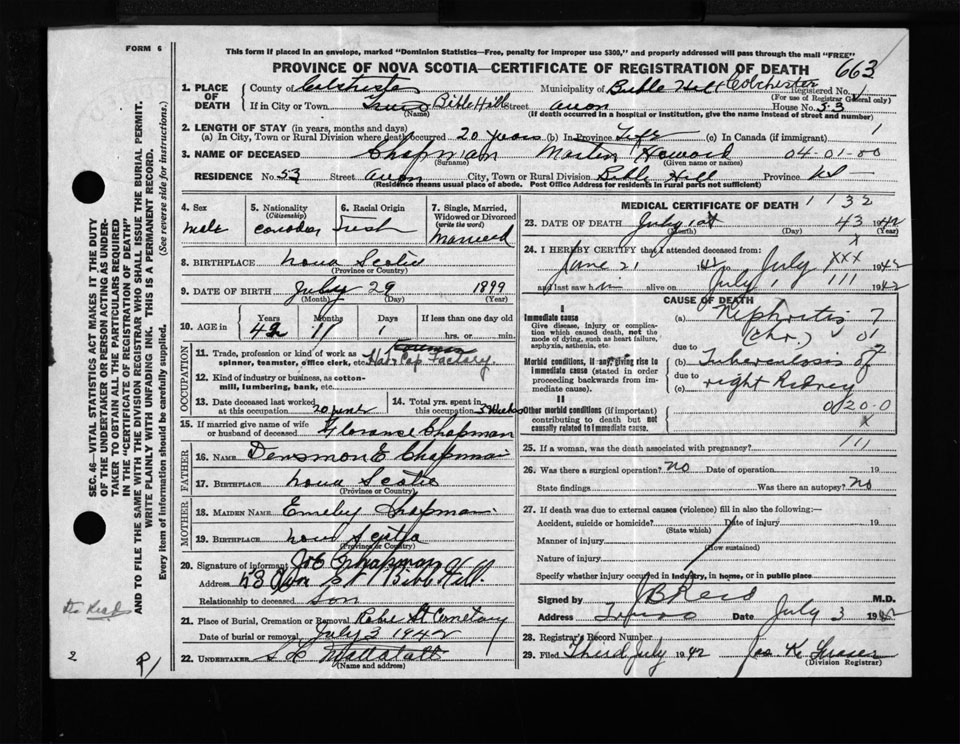 FORM 6
This form if placed in an envelope, marked "Dominion Statistics—Free, penalty for improper use $300," and properly addressed will pass through the mail "FREE"
PROVINCE OF NOVA SCOTIA—CERTIFICATE OF REGISTRATION OF DEATH
663
1. PLACE OF DEATH
County of Colchester
Municipality of Bible Hill Colchester
Registered No.
(For use of Registrar General only)
If in City or Town Truro Bible Hill Street Avon House No. 53
(Name) (If death occurred in a hospital or institution, give the name instead of street and number)
2. LENGTH OF STAY (in years, months and days)
(a) In City, Town or Rural Division where death occurred 20 years (b) In Province Life (c) In Canada (if immigrant) 1
3. NAME OF DECEASED Chapman Martin Howard 04-01-00
(Surname) (Given name or names)
RESIDENCE No. 53 Street Avon City, Town or Rural Division Bible Hill Province
(Residence means usual place of abode. Post Office Address for residents in rural parts not sufficient)
4. Sex male
5. Nationality (Citizenship)
6. Racial Origin Irish
7. Single, Married, Widowed or Divorced (write the word) Married
8. BIRTHPLACE Nova Scotia
(Province or Country)
9. DATE OF BIRTH July 29 1899
(Month) (Day) (Year)
10. AGE in Years Months Days If less than one day old
42 11 1 hrs. or min.
OCCUPATION
11. Trade, profession or kind of work as spinner, teamster, office clerk, etc. Hat Cap Factory.
12. Kind of industry or business, as cotton-mill, lumbering, bank, etc.
13. Date deceased last worked at this occupation 20 June
14. Total yrs. spent in this occupation 3 Weeks
15. If married give name of wife or husband of deceased Florance Chapman
FATHER
16. NAME Densmon E Chapman
17. BIRTHPLACE Nova Scotia
(Province or Country)
MOTHER
18. MAIDEN NAME Emeley Chapman
19. BIRTHPLACE Nova Scotia
(Province or Country)
20. Signature of informant Chapman
Address 53 Avon St Bible Hill.
Relationship to deceased Son
21. Place of Burial, Cremation or Removal Robie St Cemetary
Date of burial or removal July 3 1942
22. UNDERTAKER Mattatall
(Name and address)
MEDICAL CERTIFICATE OF DEATH 1132
23. DATE OF DEATH July 1st 43 1942
(Month) (Day) (Year)
24. I HEREBY CERTIFY that I attended deceased from:
June 21 42 to July XXX 1942
and last saw him alive on July 1 111 1942
CAUSE OF DEATH
I
Immediate cause
Give disease, injury or complication which caused death, not the mode of dying, such as heart failure, asphyxia, asthenia, etc.
(a) Nephritis 7
due to (chr.) 01
Morbid conditions, if any, giving rise to immediate cause (stated in order proceeding backwards from immediate cause).
(b) Tuberculosis of
due to
(c) right Kidney
II
Other morbid conditions (if important) contributing to death but not causally related to immediate cause.
020-0
x
25. If a woman, was the death associated with pregnancy? 111
26. Was there a surgical operation? no Date of operation 19
State findings Was there an autopsy? no
27. If death was due to external causes (violence) fill in also the following:—
Accident, suicide or homicide? Date of injury 19
(State which)
Manner of injury
(How sustained)
Nature of injury
Specify whether injury occurred in industry, in home, or in public place
Signed by J B Reid M.D.
Address Truro Date July 3 1942
28. Registrar's Record Number
29. Filed Third July 1942 Jas K Fraser
(Division Registrar)
SEC. 46—VITAL STATISTICS ACT MAKES IT THE DUTY OF THE UNDERTAKER OR PERSON ACTING AS UNDERTAKER TO OBTAIN ALL THE PARTICULARS REQUIRED IN THE "CERTIFICATE OF REGISTRATION OF DEATH" AND TO FILE THE SAME WITH THE DIVISION REGISTRAR WHO SHALL ISSUE THE BURIAL PERMIT.
WRITE PLAINLY WITH UNFADING INK. THIS IS A PERMANENT RECORD.
Every item of information should be carefully supplied. (See reverse side for instructions.)
2